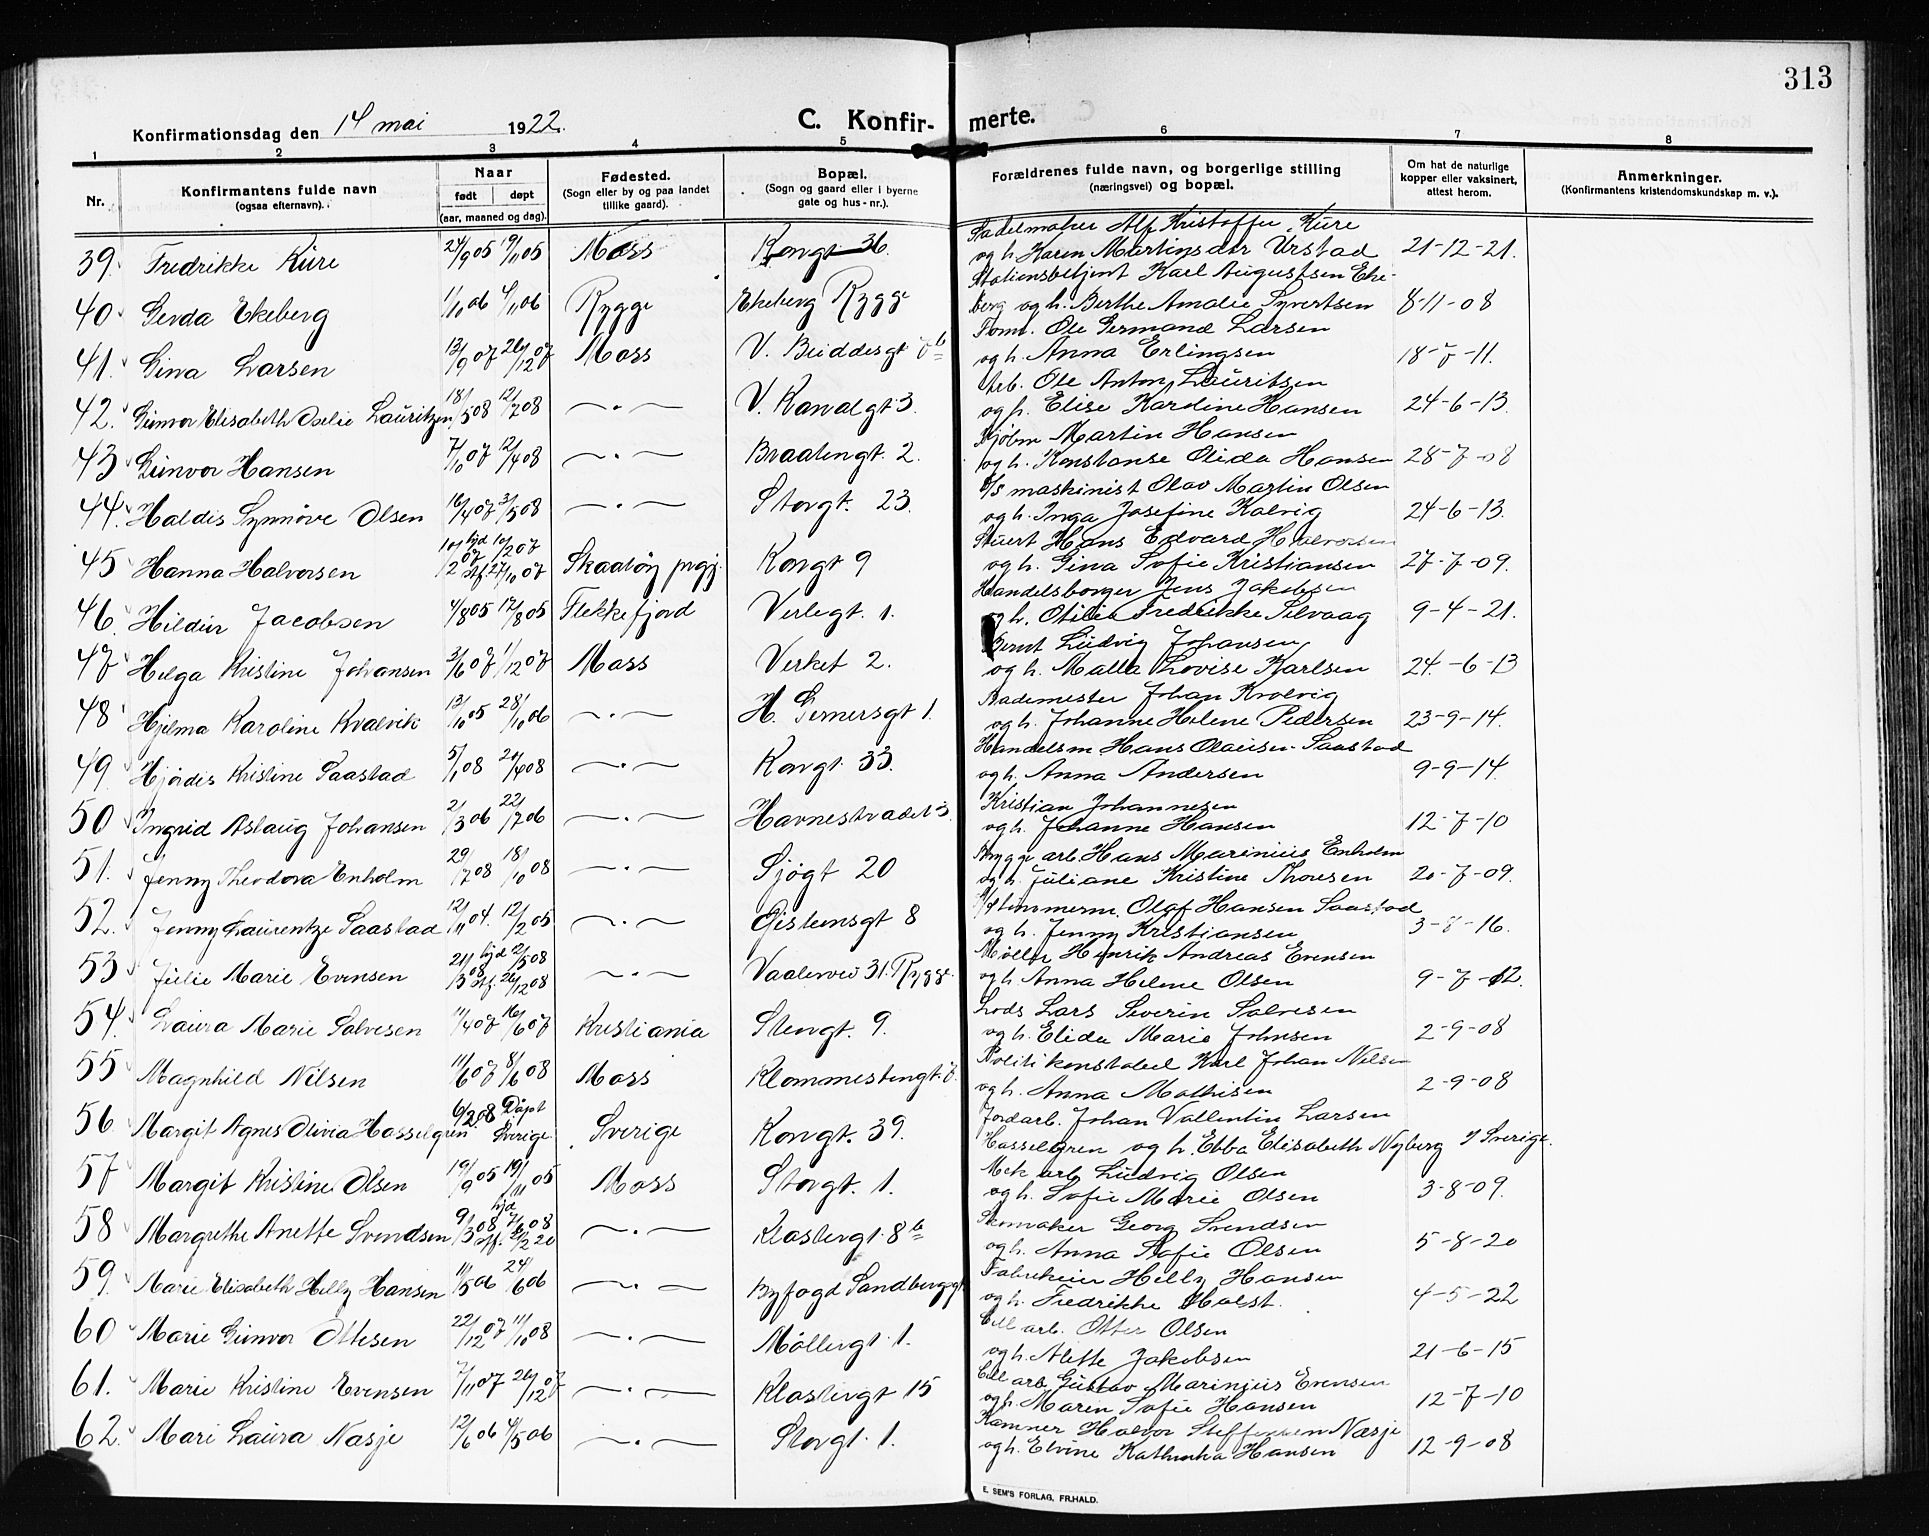 313
Konfirmationsdag den 14 mai 1922.
C. Konfir- merte.
1 2 3 4 5 6 7 8
Nr. Konfirmantens fulde navn (ogsaa efternavn). Naar født døpt (aar, maaned og dag). Fødested. (Sogn eller by og paa landet tillike gaard). Bopæl. (Sogn og gaard eller i byerne gate og hus-nr.). Forældrenes fulde navn, og borgerlige stilling (næringsvei) og bopæl. Om hat de naturlige kopper eller vaksinert, attest herom. Anmerkninger. (Konfirmantens kristendomskundskap m. v.).
Sadelmaker Alf Kristoffer Kure
39. Fredrikke Kure 24/9 05 19/11 05 Moss Kongt 36. og h. Karen Martinsdtr Urstad 21-12-21.
Stationsbetjent Karl Augustsen Eke-
40. Gerda Ekeberg 1/10 06 4/11 06 Rygge Ekeberg Rygge berg og h. Berthe Amalie Syvertsen 8-11-08
Tomt. Ole Germand Larsen
41. Gina Larsen 13/9 07 26/12 07 Moss V. Buddesgt og h. Anna Erlingsen 18-7-11.
Arb. Ole Anton Lauritsen
42. Gunvor Elisabeth Oselie Lauritzen 18/5 08 12/7 08 —·— V. Kanalgt 3. og h. Elise Karoline Hansen 24-6-13.
Sjøm Martin Hansen
43. Gunvor Hansen 7/10 07 12/4 08 —·— Braatengt. 2. og h. Konstanse Olida Hansen 28-7-08
D/S maskinist Olav Martin Olsen
44. Haldis Synnøve Olsen 16/4 07 3/5 08 —·— Storgt. 23. og h. Inga Josefine Kolvig 24-6-13.
Stuert Hans Edvard Halvorsen
45 Hanna Halvorsen 10/2 07 hjd 10/2 07 stf. 27/10 07 Skaatøy prgj. Kongt 9 og h. Gina Sofie Kristiansen 27-7-09.
Handelsborger Jens Jakobsen
46. Hildur Jacobsen 4/8 05 17/8 05 Flekkefjord Verlegt. 1. og h. Otilie Fredrikke Selvaag 9-4-21.
Bernt Ludvig Johansen
47 Helga Kristine Johansen 3/6 07 1/12 07 Moss Verket 2. og h. Malla Lovise Karlsen 24-6-13
Bademester Johan Kvalvig
48 Hjelma Karoline Kvalvik 13/10 05 28/10 06 —·— H. Gernersgt 1. og h. Johanne Helene Pedersen 23-9-14.
Handelsm Hans Olausen Saastad
49. Hjördis Kristine Saastad 5/1 08 20/4 08 —·— Kongt. 33. og h. Anna Andersen 9-9-14.
Kristian Johannesen
50 Ingrid Aslaug Johansen 2/3 06 22/7 06 —·— Havnestradet 3. og h. Johanne Hansen 12-7-10
Brygge arb Hans Marinius Enholm
51. Jenny Theodora Enholm 29/7 08 18/10 08 —·— Sjøgt 20 og h. Juliane Kristine Thoresen 20-7-09.
tømmerm. Olaf Hansen Saastad
52. Jenny Laurentze Saastad 12/11 04. 12/2 05 —·— Gistensgt 8 og h. Jenny Kristiansen 3-8-16.
Møller Henrik Andreas Evensen
53 Julie Marie Evensen 24/3 08 hjd 2/5 08 stf. 26/12 08 —·— Vaalervei 31. Rygge. og h. Anna Helene Olsen 9-7-12.
Lods Lars Severin Salvesen
54. Laura Marie Salvesen 11/4 07 16/6 07 Kristiania Stengt. 9. og h. Elida Marie Johnsen 2-9-08
Politikonstabel Karl Johan Nilsen
55 Magnhild Nilsen 11/6 07 8/6 08 Moss Klommestengt. og h. Anna Mathisen 2-9-08
Jordarb. Johan Vallentin Larsen
56. Margit Agnes Olivia Hasselgren 6/2 08 Döpt i Sverige. Sverige Kongt. 39. Hasselgren og h. Ebba Elisabeth Nyberg i Sverige.
Mek arb Ludvig Olsen
57 Margit Kristine Olsen 19/9 05 19/11 05 Moss Storgt. 1. og h. Sofie Marie Olsen 3-8-09.
Skomaker Georg Svendsen
58 Margrethe Anette Svendsen 9/3 08 hjd 7/6 08 stf. 2/2 20 —·— Klostergt. 8b og h. Anna Sofie Olsen 5-8-20
Fabrikeier Helly Hansen
59. Marie Elisabeth Helly Hansen 11/5 06 24/6 06 —·— Byfogd Sandbergsgt og h. Fredrikke Holst. 4-5-22
Cell arb. Otter Olsen
60 Marie Gunvor Ottesen 22/12 07 11/10 08 —·— Møllergt. 1. og h. Alette Jakobsen 21-6-15
Cell arb Gustav Marinius Evensen
61. Marie Kristine Evensen 7/11 07 26/12 07 —·— Klostergt 15 og h. Maren Sofie Hansen 12-7-10
Kamner Halvor Steffensen Næsje
62. Mari Laura Næsje 12/6 06 4/5 06 —·— Storgt. 1. og h. Elvine Kathinka Hansen 12-9-08
E. SEM'S FORLAG, FR.HALD.